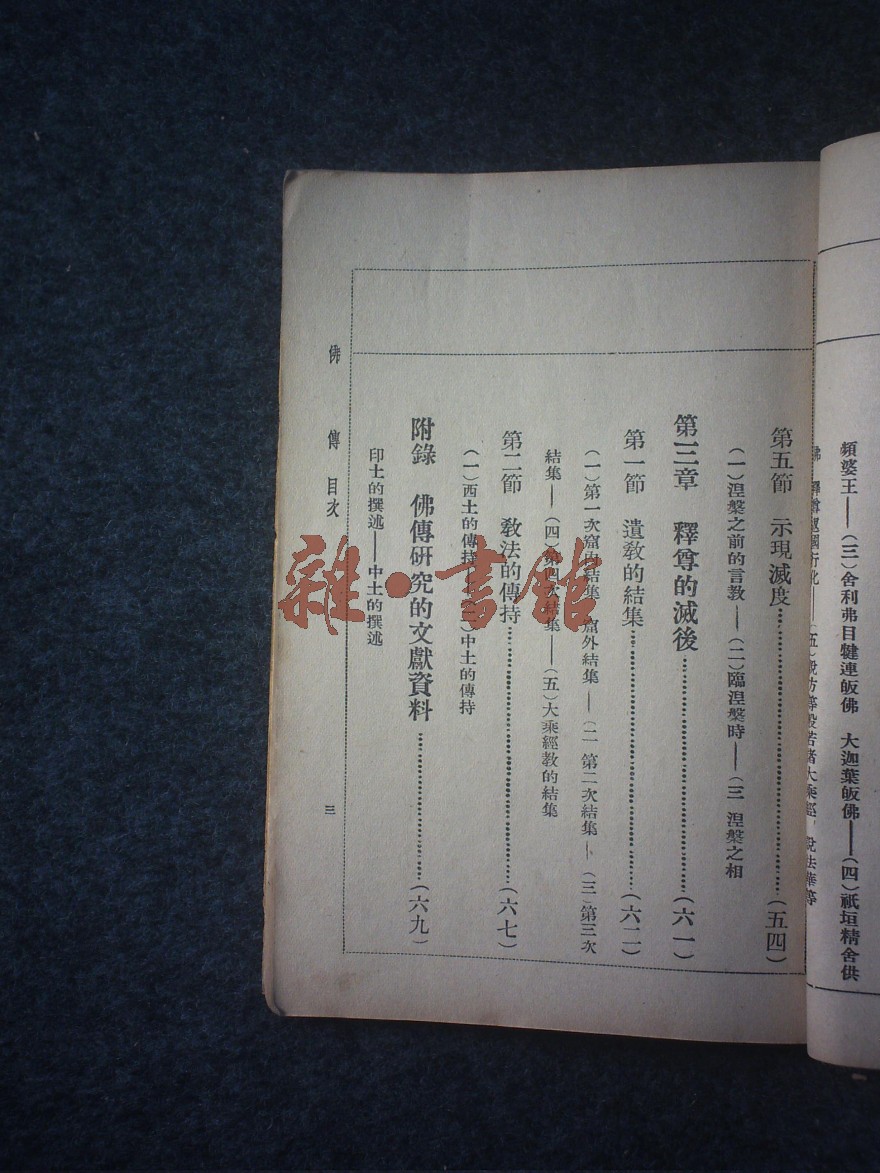 頻婆王——(三)舍利弗目犍連皈佛 大迦葉皈佛——(四)祇垣精舍供
佛 釋尊還國行化——(五)說方等般若諸大乘經 說法華等
第五節 示現滅度……(五四)
(一)涅槃之前的言教——(二)臨涅槃時——(三 涅槃之相
第三章 釋尊的滅後……(六一)
第一節 遺教的結集……(六二)
(一)第一次窟內結集 窟外結集——(二 第二次結集——(三)第三次
結集——(四)第四次結集——(五)大乘經教的結集
第二節 教法的傳持……(六七)
(一)西土的傳持——(二)中土的傳持
附錄 佛傳研究的文獻資料……(六九)
印土的撰述——中土的撰述
佛傳目次
三
雜·書館